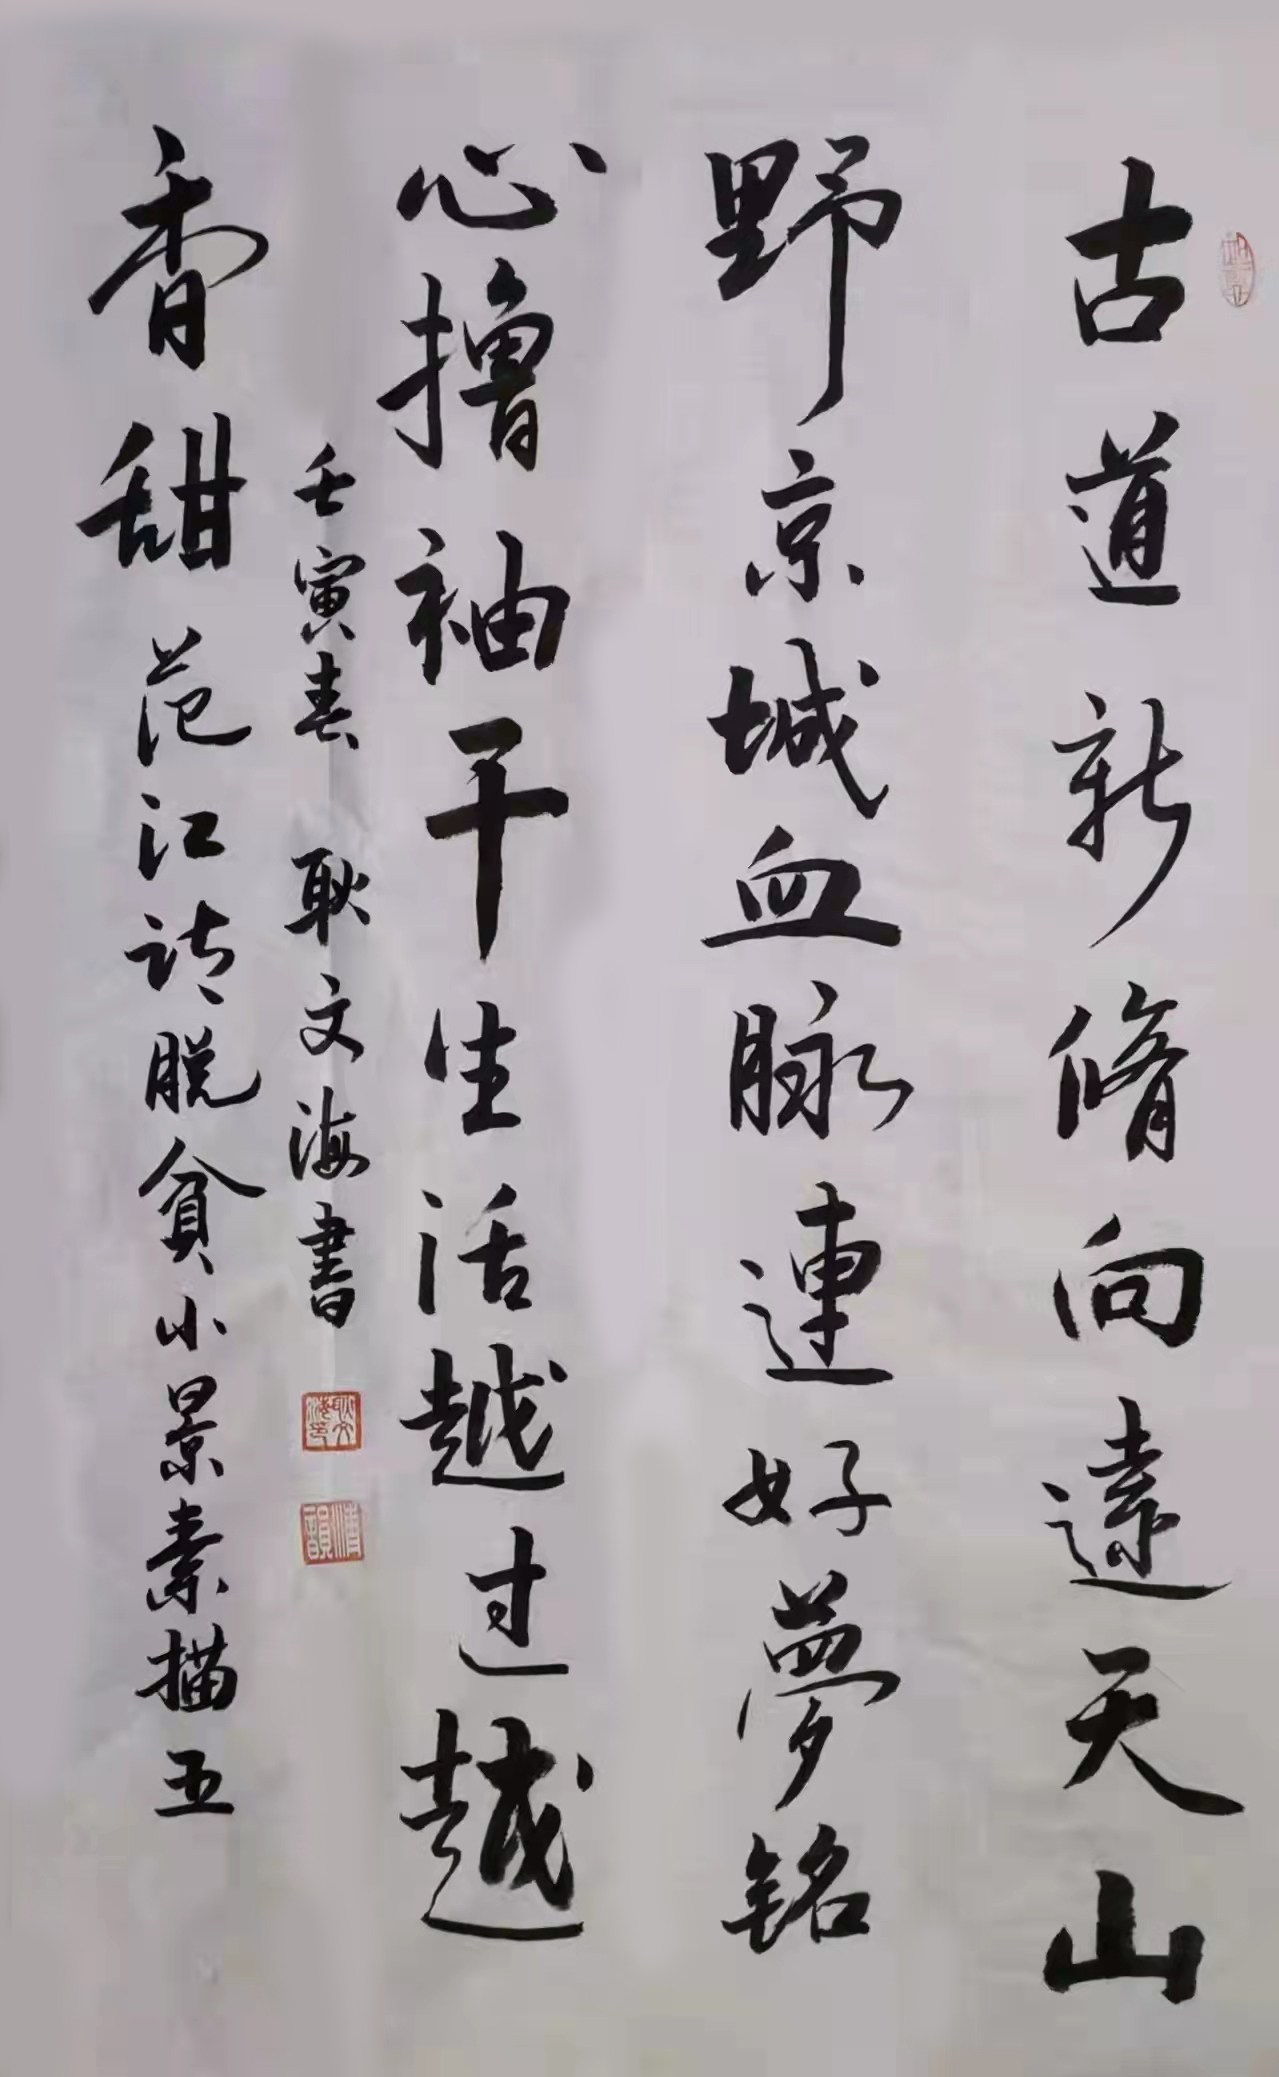 古道新脩向遠天山
野京城血脉連好夢銘
心撸袖干生活越过越
香甜范江诗脱貧小景素描五
壬寅春 耿文海書
耿文海印
清韻